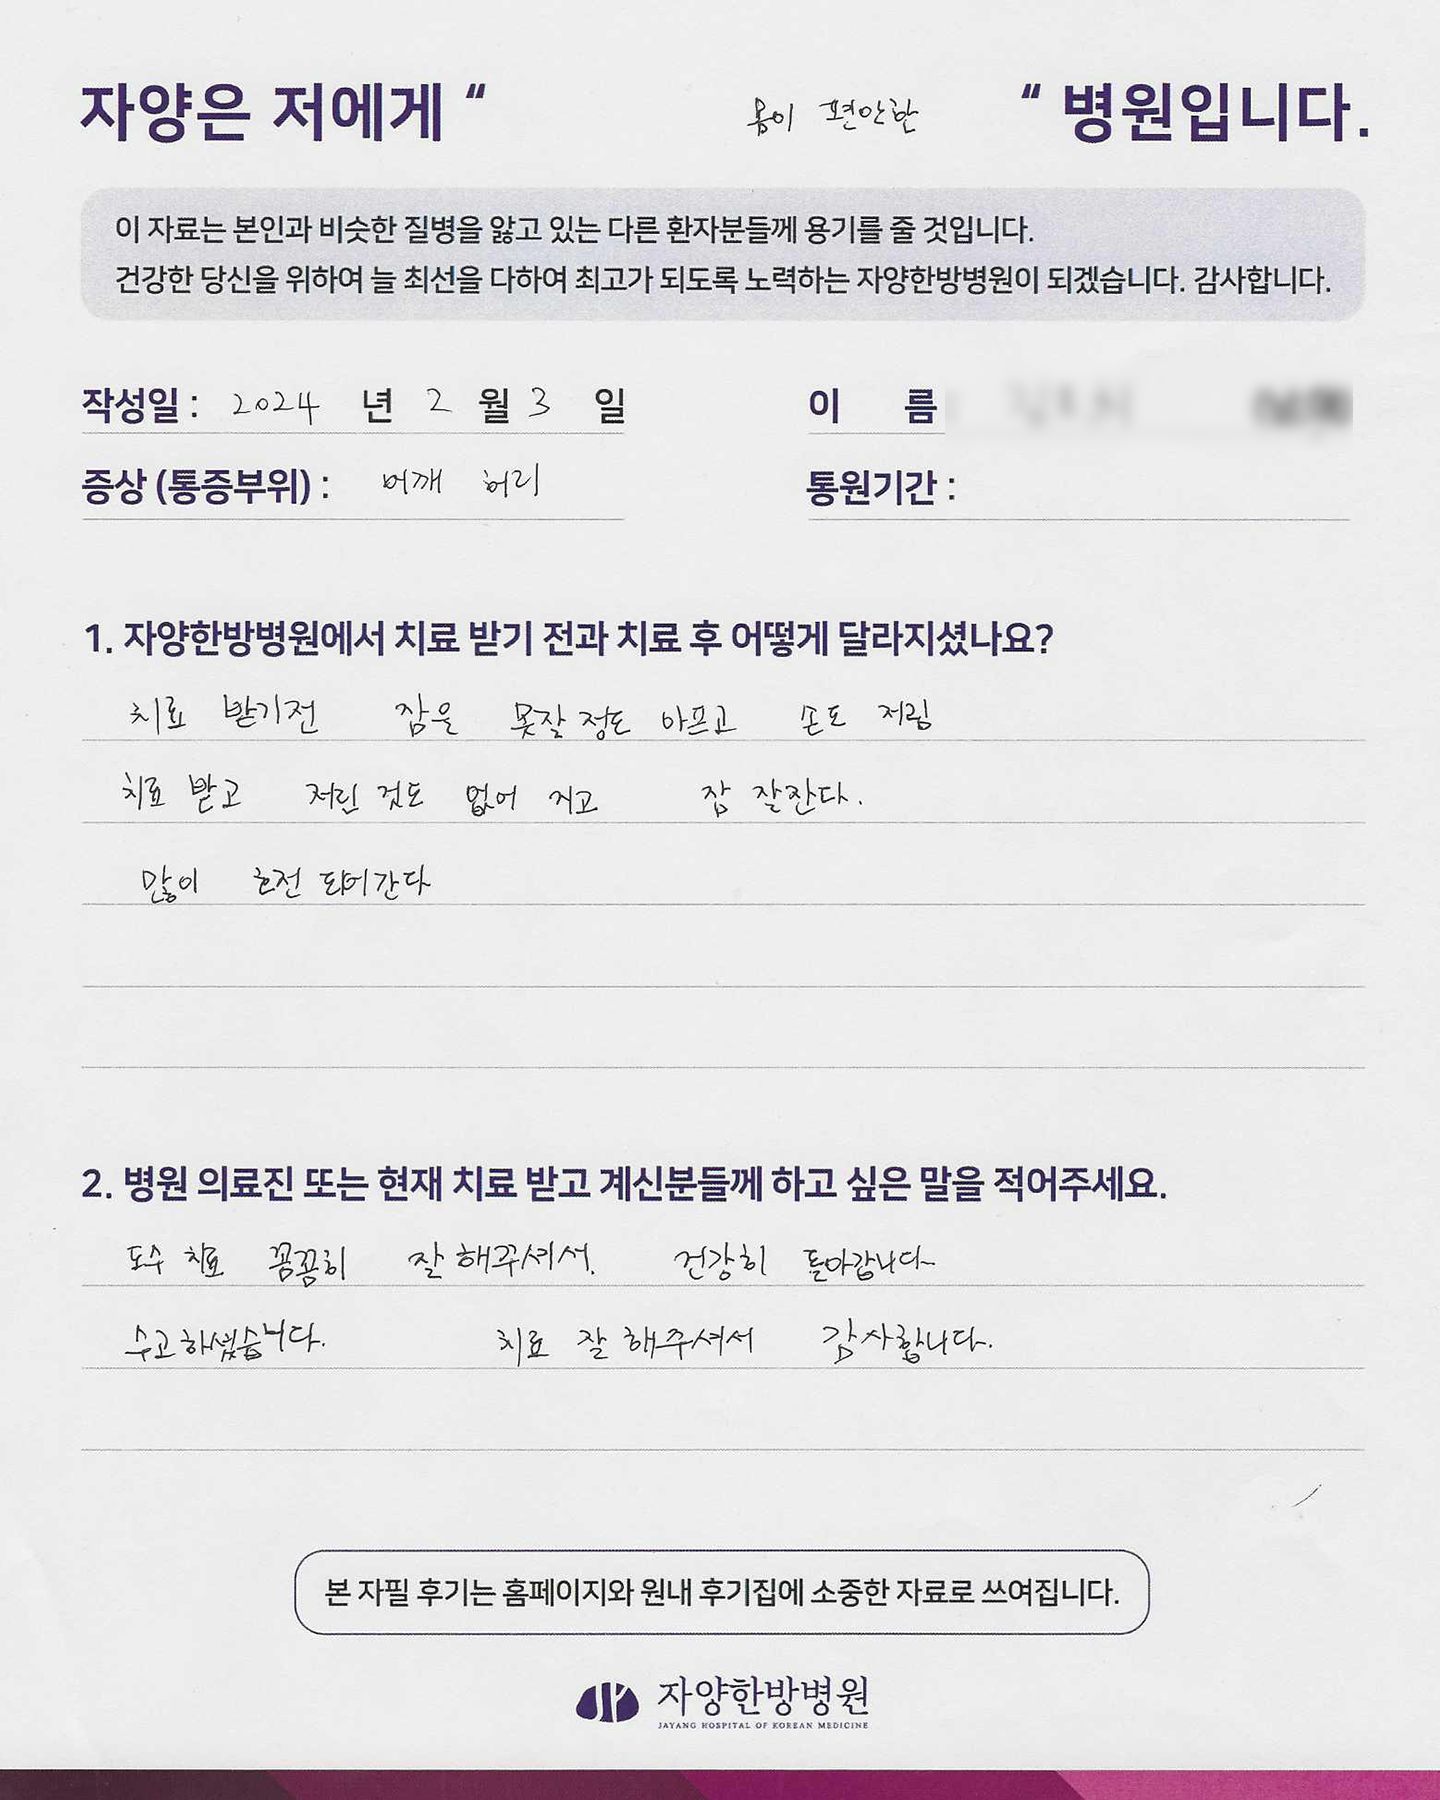 자양은 저에게 “ 몸이 편안한 “ 병원입니다.
이 자료는 본인과 비슷한 질병을 앓고 있는 다른 환자분들께 용기를 줄 것입니다.
건강한 당신을 위하여 늘 최선을 다하여 최고가 되도록 노력하는 자양한방병원이 되겠습니다. 감사합니다.
작성일 : 2024 년 2 월 3 일 이 름
증상 (통증부위) : 어깨 허리 통원기간 :
1. 자양한방병원에서 치료 받기 전과 치료 후 어떻게 달라지셨나요?
치료 받기전 잠을 못잘 정도 아프고 손도 저림
치료 받고 저린 것도 없어 지고 잠 잘잔다.
많이 호전 되어간다
2. 병원 의료진 또는 현재 치료 받고 계신분들께 하고 싶은 말을 적어주세요.
도수 치료 꼼꼼히 잘 해주셔서. 건강히 돌아갑니다~
수고하셨습니다. 치료 잘 해주셔서 감사합니다.
본 자필 후기는 홈페이지와 원내 후기집에 소중한 자료로 쓰여집니다.
자양한방병원
JAYANG HOSPITAL OF KOREAN MEDICINE